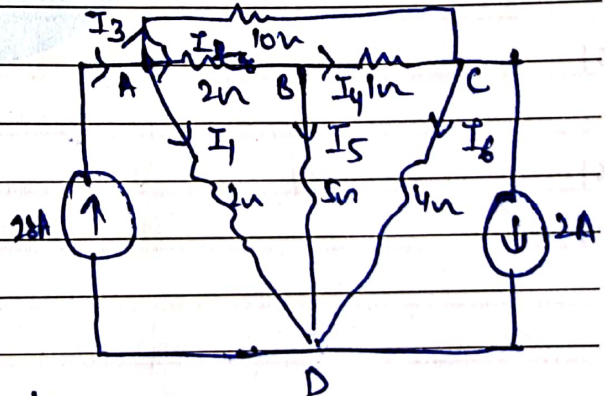 I3
10Ω
A
2Ω
B
I4
1Ω
C
I1
I5
I6
2Ω
5Ω
4Ω
28A
2A
D